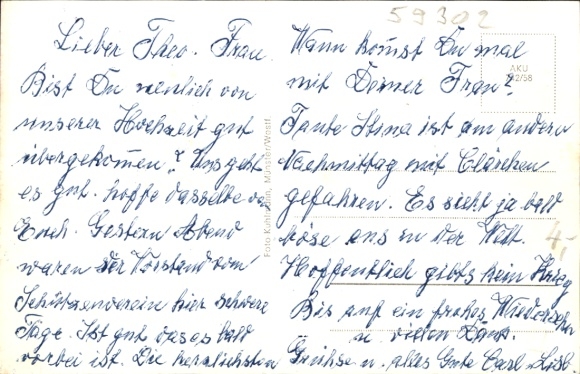 59302
Lieber Theo. Frau
Bist Du neulich von
unserer Hochzeit gut
übergekomen? Uns geht
es gut. hoffe dasselbe von
Euch. Gestern Abend
waren der Vorstand vom
Schützenverein hier schwere
Tage. Ist gut das es bald
vorbei ist. Die herzlichsten
Wann komst Du mal
mit Deiner Frau?
Tante Anna ist am andern
Nachmittag mit Clärchen
gefahren. Es sieht ja bald
böse aus in der Welt.
Hoffentlich gibts kein Krieg
Bis auf ein frohes Wiedersehn
u. vielen Dank.
Grühse u. alles Gute Carl u. Lisb.
AKU
4,-
Münster/Westf.